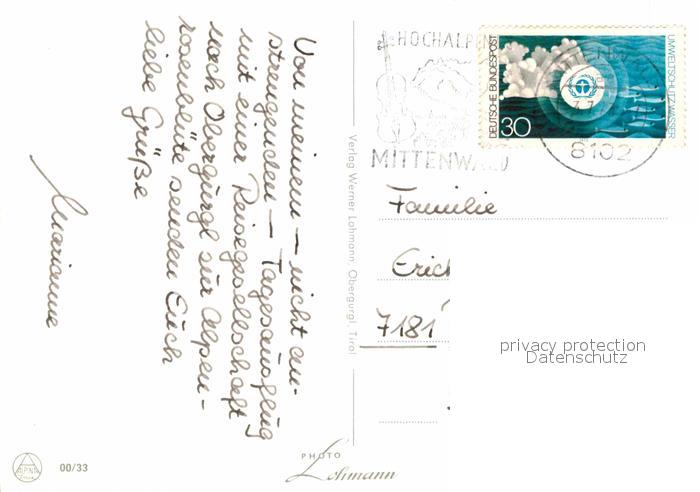 Von meinem – nicht an-
strengenden – Tagesausflug
mit einer Reisegesellschaft
nach Obergurgl zur Alpen-
rosenblüte senden Euch
liebe Grüße
Marianne
Verlag Werner Lohmann, Obergurgl, Tirol
HOCHALPEN
MITTENWALD
DEUTSCHE BUNDESPOST
30
UMWELTSCHUTZ: WASSER
8102
Familie
Erich
7181
privacy protection
Datenschutz
00/33
PHOTO
Lohmann